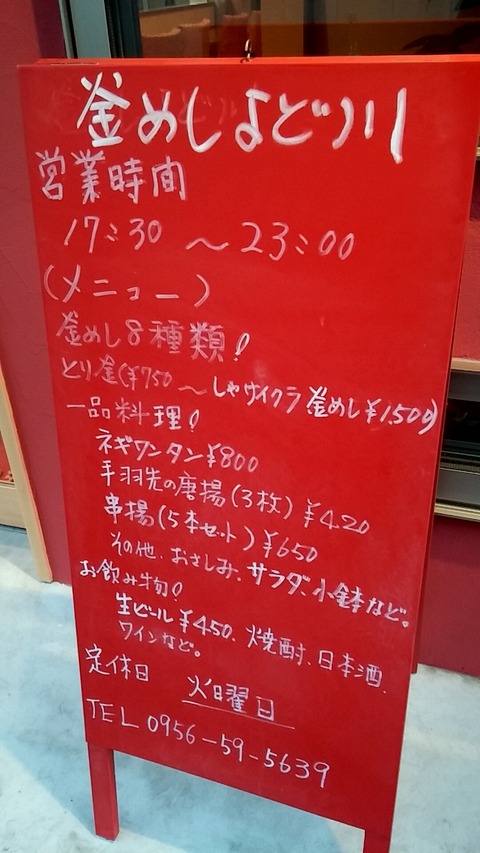 釜めしよど川
営業時間
17:30 〜 23:00
(メニュー)
釜めし8種類!
とり釜(¥750 〜 しゃけイクラ釜めし¥1,500)
一品料理!
ネギワンタン¥800
手羽先の唐揚(3枚)¥420
串揚(5本セット)¥650
その他、おさしみ、サラダ、小鉢など。
お飲み物!
生ビール¥450、焼酎、日本酒、
ワインなど。
定休日
火曜日
TEL 0956-59-5639